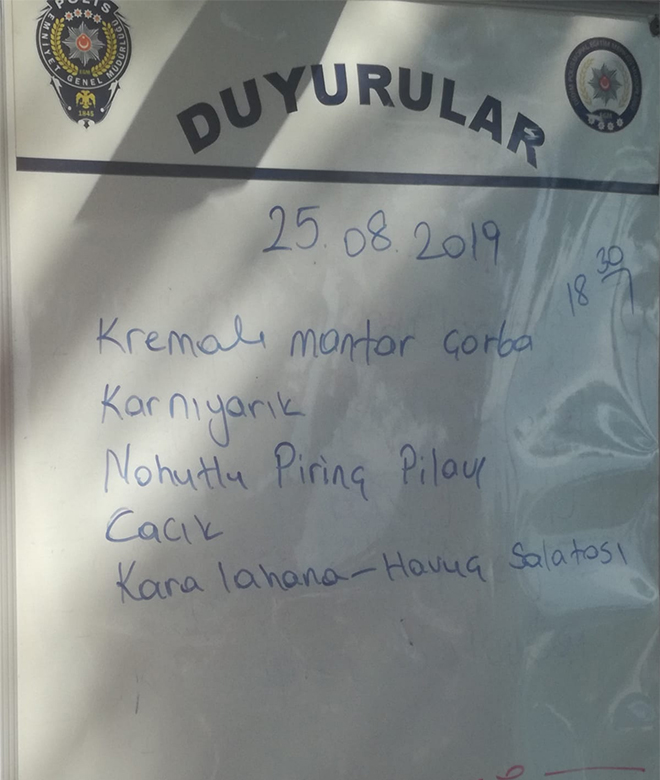 POLİS
EMNİYET GENEL MÜDÜRLÜĞÜ
1845
DUYURULAR
25.08.2019
18 30
Kremalı mantar çorba
Karnıyarık
Nohutlu Pirinç Pilavı
Cacık
Kara lahana-Havuç Salatası